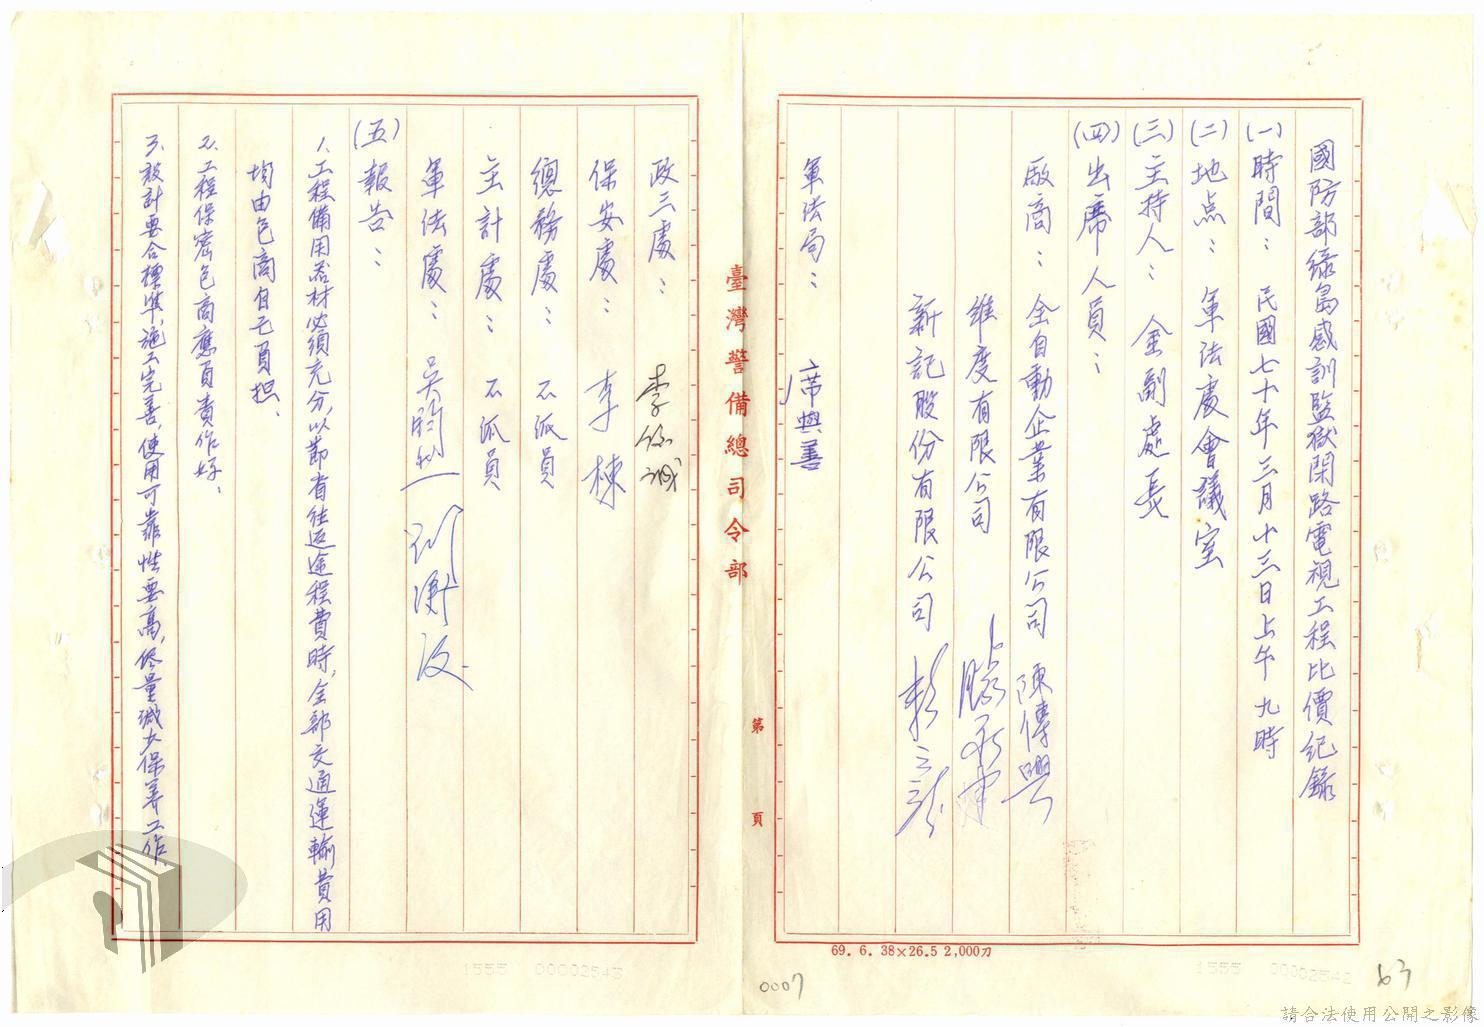 國防部綠島感訓監獄閉路電視工程比價紀錄
(一)時間：民國七十年三月十三日上午九時
(二)地点：軍法處會議室
(三)主持人：金副處長
(四)出席人員：
廠商：全自動企業有限公司 陳傳興
維度有限公司
新記股份有限公司
軍法局：席興善
臺灣警備總司令部
第 頁
69. 6. 38×26.5 2,000刀
政三處：李
保安處：李棟
總務處：不派員
主計處：不派員
軍法處：吳
(五)報告：
1.工程備用器材必須充分,以節省往返途程費時,全部交通運輸費用
均由包商自己負担、
2.工程保密包商應負責作好、
3.設計要合標準,施工完善,使用可靠性要高,儘量減少保養工作、
1555 00002543
0007
1555 00002542
63
請合法使用公開之影像